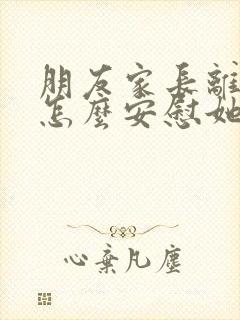 朋友家長離
怎麼安慰她
心棄凡塵